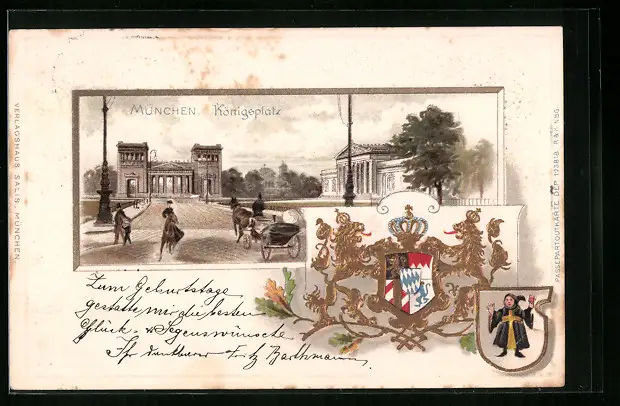 MÜNCHEN. Königsplatz
VERLAGSHAUS SALIS, MÜNCHEN.
PASSEPARTOUTKARTE DEP. 12381B. R. & K. NBG.
Zum Geburtstage
gestatte mir die besten
Glück- u Segenswünsche
Ihr dankbarer Fritz Barthmann.